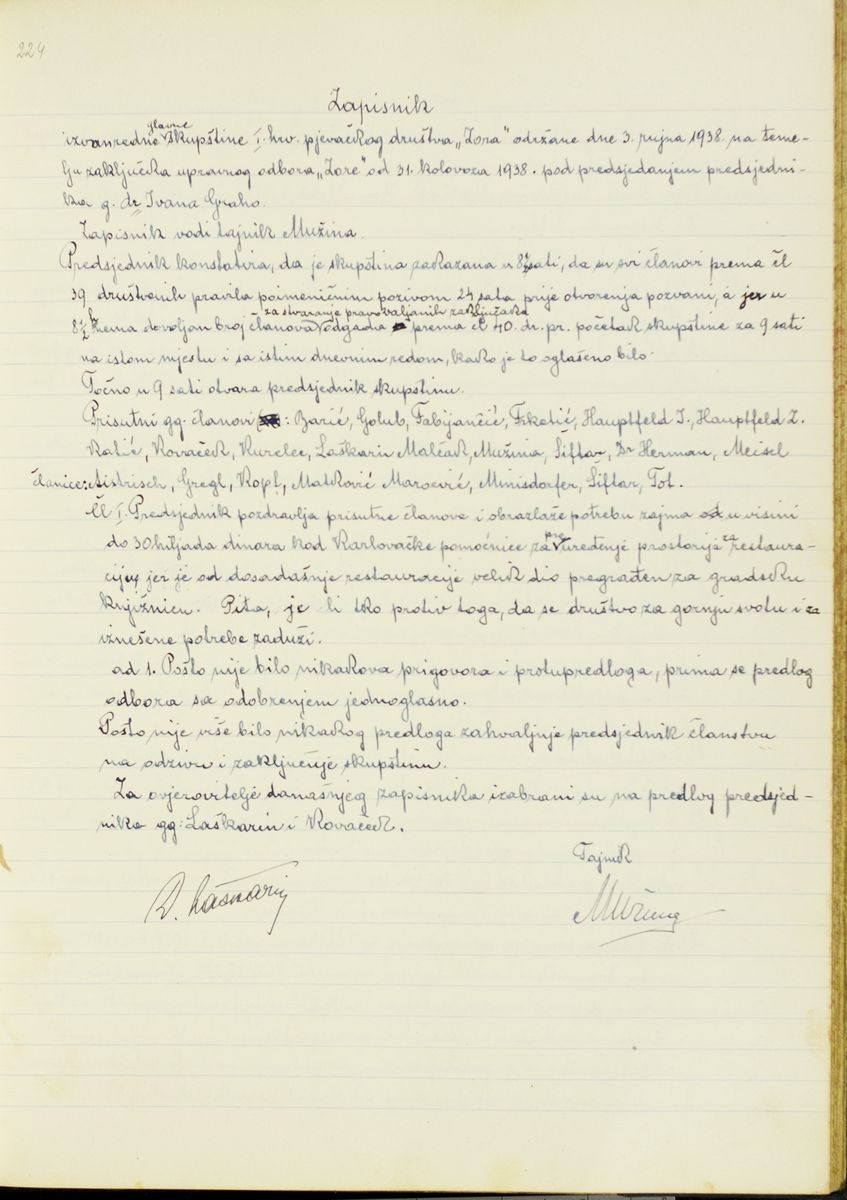 224
Zapisnik
izvanredne glavne skupštine I. hrv. pjevačkog društva „Zora" održane dne 3. rujna 1938. na teme-
lju zaključka upravnog odbora „Zore" od 31. kolovoza 1938. pod predsjedanjem predsjedni-
ka g. dr Ivana Graho.
Zapisnik vodi tajnik Mužina.
Predsjednik konstatira, da je skupština zakazana u 8½ sati, da su svi članovi prema čl
39 društvenih pravila poimeničnim pozivom 24 sata prije otvorenja pozvani, a jer u
8½ h nema dovoljan broj članova za stvaranje pravovaljanih zaključaka odgađa prema čl 40. dr. pr. početak skupštine za 9 sati
na istom mjestu i sa istim dnevnim redom, kako je to oglašeno bilo.
Točno u 9 sati otvara predsjednik skupštinu.
Prisutni gg. članovi: Barić, Golub, Fabijančić, Frketić, Hauptfeld I., Hauptfeld Z.
Katić, Kovaček, Kurelec, Laškarin Malčak, Mužina, Šiftar, Dr Herman, Meisel
članice: Aistrisch, Gregl, Kopf, Matković Maroević, Minisdorfer, Šiftar, Tot.
Čl I. Predsjednik pozdravlja prisutne članove i obrazlaže potrebu zajma od u visini
do 30 hiljada dinara kod Karlovačke pomoćnice za preuređenje prostorija za restaura-
ciju jer je od dosadašnje restauracije velik dio pregrađen za gradsku
knjižnicu. Pita, je li tko protiv toga, da se društvo za gornju svotu i za
iznešene potrebe zaduži.
ad 1. Pošto nije bilo nikakova prigovora i protupredloga, prima se predlog
odbora sa odobrenjem jednoglasno.
Pošto nije više bilo nikakog predloga zahvaljuje predsjednik članstvu
na odzivu i zaključuje skupštinu.
Za ovjerovitelje današnjeg zapisnika izabrani su na predlog predsjed-
nika gg: Laškarin i Kovaček.
Tajnik
D. Laškarin
Mužina